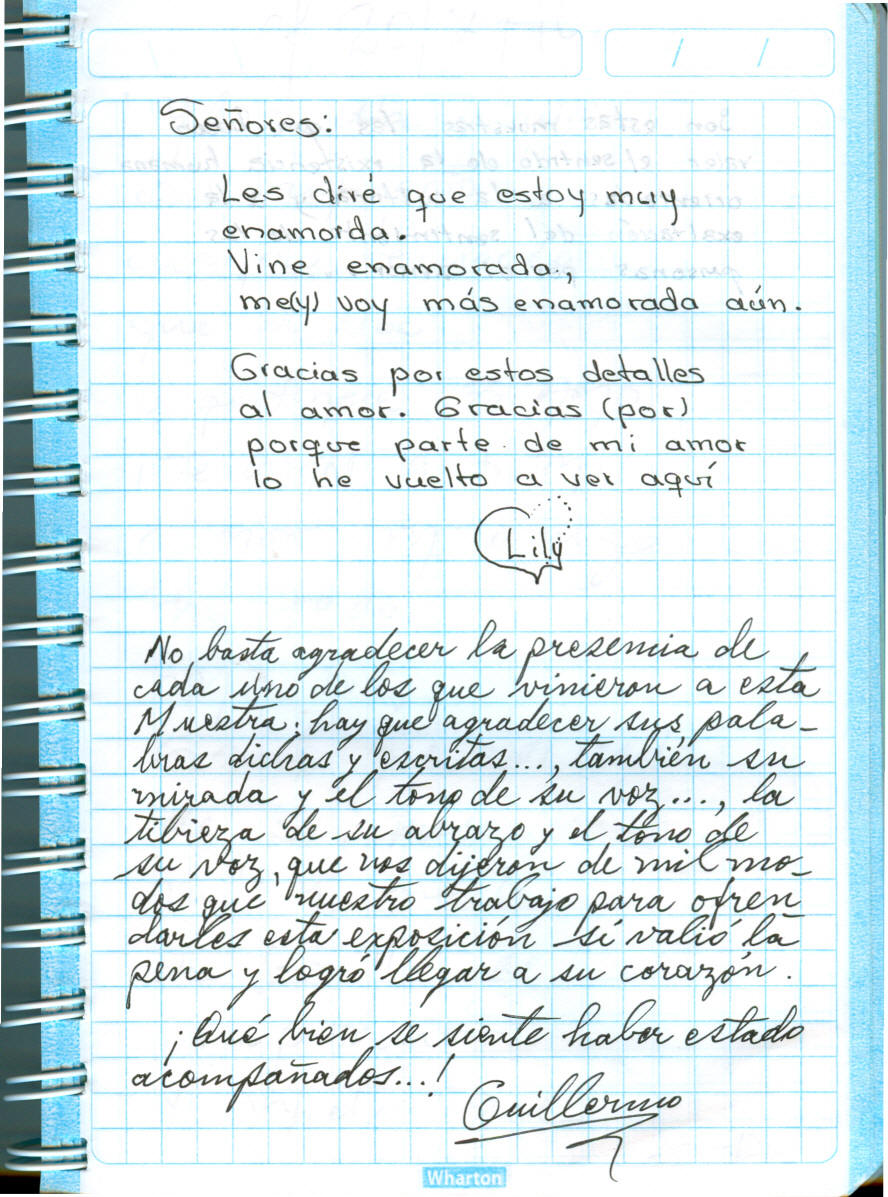 Señores:
Les diré que estoy muy
enamorda.
Vine enamorada,
me(y) voy más enamorada aún.
Gracias por estos detalles
al amor. Gracias (por)
porque parte de mi amor
lo he vuelto a ver aquí
Lily
No basta agradecer la presencia de
cada uno de los que vinieron a esta
Muestra; hay que agradecer sus pala-
bras dichas y escritas..., también su
mirada y el tono de su voz..., la
tibieza de su abrazo y el tono de
su voz, que nos dijeron de mil mo-
dos que nuestro trabajo para ofren
darles esta exposición sí valió la
pena y logró llegar a su corazón.
¡Qué bien se siente haber estado
acompañados...!
Guillermo
Wharton